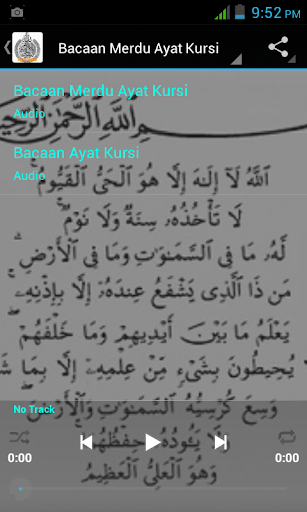 9:52 PM
Bacaan Merdu Ayat Kursi
Bacaan Merdu Ayat Kursi
بِسْمِ اللَّهِ الرَّحْمَٰنِ الرَّحِيمِ
Audio
Bacaan Ayat Kursi
Audio
اَللَّهُ لَآ إِلَهَ إِلَّا هُوَ الْحَيُّ الْقَيُّومُ
لَا تَأْخُذُهُ سِنَةٌ وَلَا نَوْمٌ
لَهُ مَا فِي السَّمَوَاتِ وَمَا فِي الْأَرْضِ
مَن ذَا الَّذِي يَشْفَعُ عِندَهُ إِلَّا بِإِذْنِهِ
يَعْلَمُ مَا بَيْنَ أَيْدِيهِمْ وَمَا خَلْفَهُمْ
يُحِيطُونَ بِشَيْءٍ مِّنْ عِلْمِهِ إِلَّا بِمَا
No Track
وَسِعَ كُرْسِيُّهُ السَّمَوَاتِ وَالْأَرْضَ
لَا يَئُودُهُ حِفْظُهُمَا
0:00
0:00
وَهُوَ الْعَلِيُّ الْعَظِيمُ